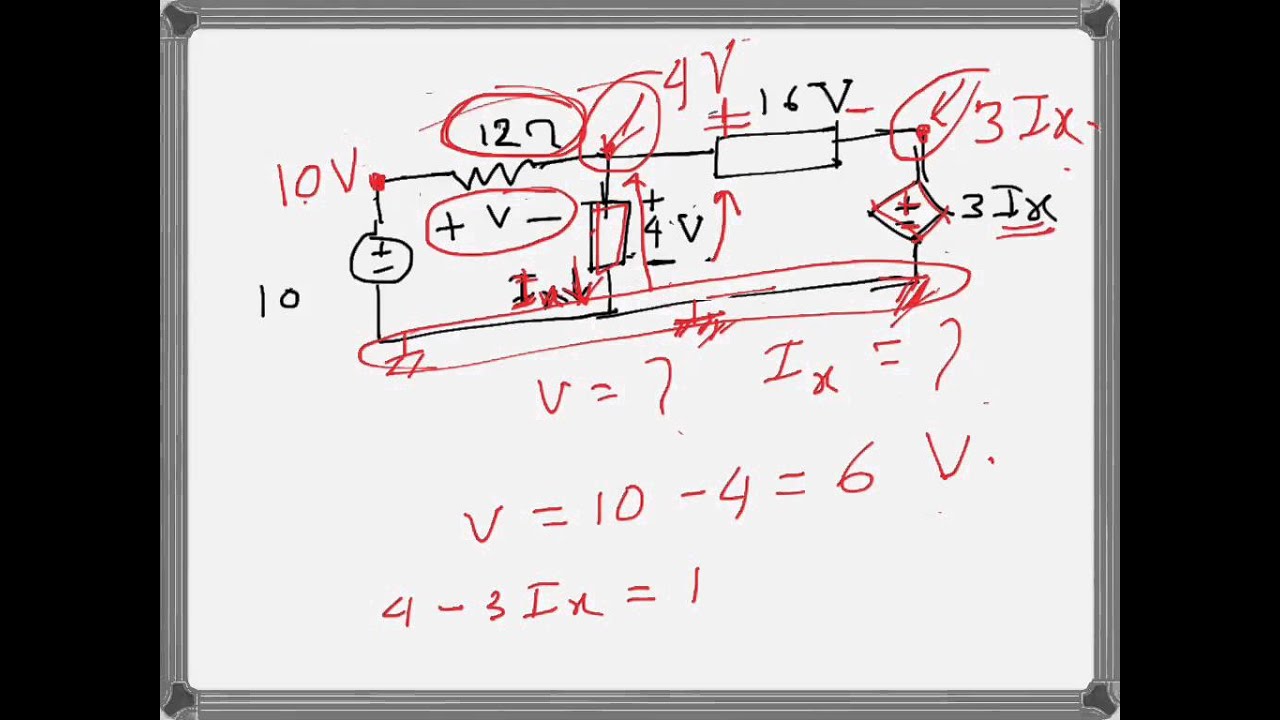 4V
16V
+ -
12Ω
3Ix
10V
+ V -
+
4V
-
+
-
3Ix
+
-
Ix
10
V = ?
Ix = ?
V = 10 - 4 = 6 V.
4 - 3Ix = 1